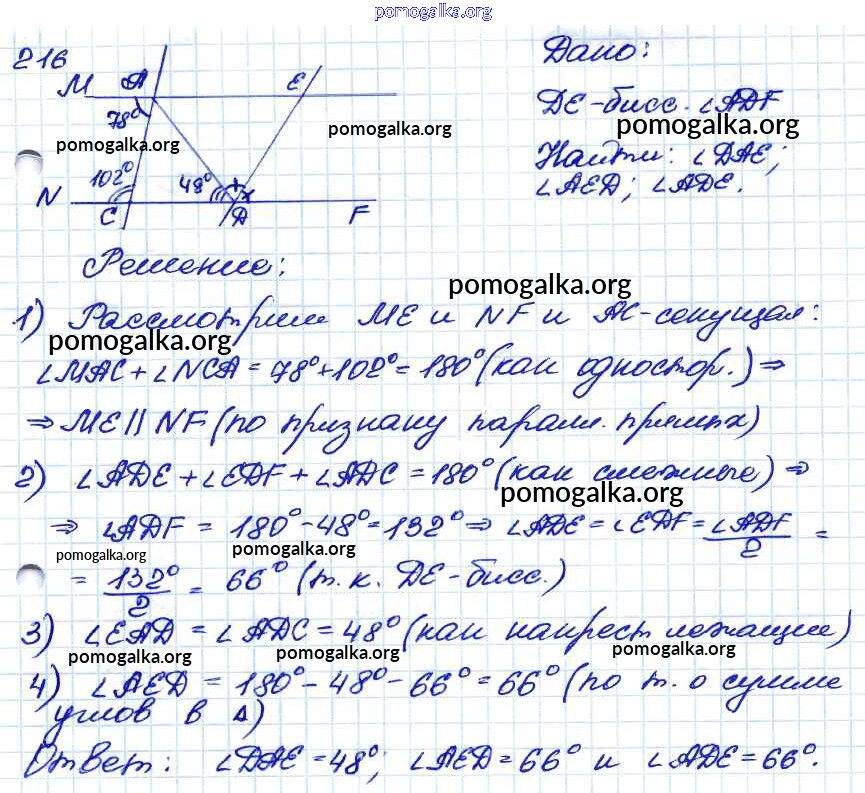 pomogalka.org
216
M A E
78°
pomogalka.org
102° 48° x x
N C D F
Дано:
DE-бисс. ∠ADF
pomogalka.org
pomogalka.org
Найти: ∠DAE;
∠AED; ∠ADE.
Решение:
pomogalka.org
1) Рассмотрим ME и NF и AC-секущая:
pomogalka.org
∠MAC + ∠NCA = 78° + 102° = 180° (как одностор.) ⇒
⇒ ME || NF (по признаку паралл. прямых)
2) ∠ADE + ∠EDF + ∠ADC = 180° (как смежные) ⇒
pomogalka.org
⇒ ∠ADF = 180° - 48° = 132° ⇒ ∠ADE = ∠EDF = ∠ADF/2 =
pomogalka.org pomogalka.org
= 132°/2 = 66° (т.к. DE-бисс.)
3) ∠EAD = ∠ADC = 48° (как накрест лежащие)
pomogalka.org pomogalka.org pomogalka.org
4) ∠AED = 180° - 48° - 66° = 66° (по т. о сумме
углов в Δ)
Ответ: ∠DAE = 48°; ∠AED = 66° и ∠ADE = 66°.